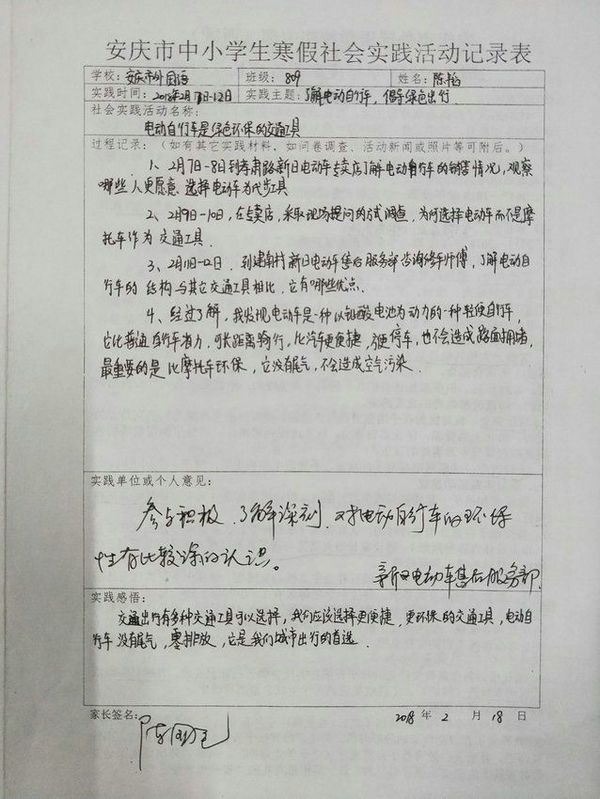 安庆市中小学生寒假社会实践活动记录表
学校: 安庆市外国语 班级: 809 姓名: 陈
实践时间: 2018年2月7日-12日 实践主题: 了解电动自行车,倡导绿色出行
社会实践活动名称:
电动自行车是绿色环保的交通工具
过程记录:(如有其它实践材料,如问卷调查、活动新闻或照片等可附后。)
1、2月7日-8日到孝肃路新日电动车专卖店了解电动自行车的销售情况,观察
哪些人更愿意选择电动车为代步工具
2、2月9日-10日,在专卖店,采取现场提问的方式调查,为何选择电动车而不是摩
托车作为交通工具.
3、2月11日-12日.到建南村新日电动车售后服务部咨询修车师傅,了解电动自
行车的结构与其它交通工具相比,它有哪些优点.
4、经过了解,我发现电动车是一种以铅酸电池为动力的一种轻便自行车,
它比普通自行车省力,可长距离骑行,比汽车更便捷,方便停车,也不会造成路面拥堵,
最重要的是比摩托车环保,它没有尾气,不会造成空气污染.
实践单位或个人意见:
参与积极、了解深刻、对电动自行车的环保
性有比较深的认识。
新日电动车售后服务部.
实践感悟:
交通出行有多种交通工具可以选择,我们应该选择更便捷.更环保的交通工具,电动自
行车没有尾气,零排放,它是我们城市出行的首选.
家长签名: 2018 年 2 月 18 日